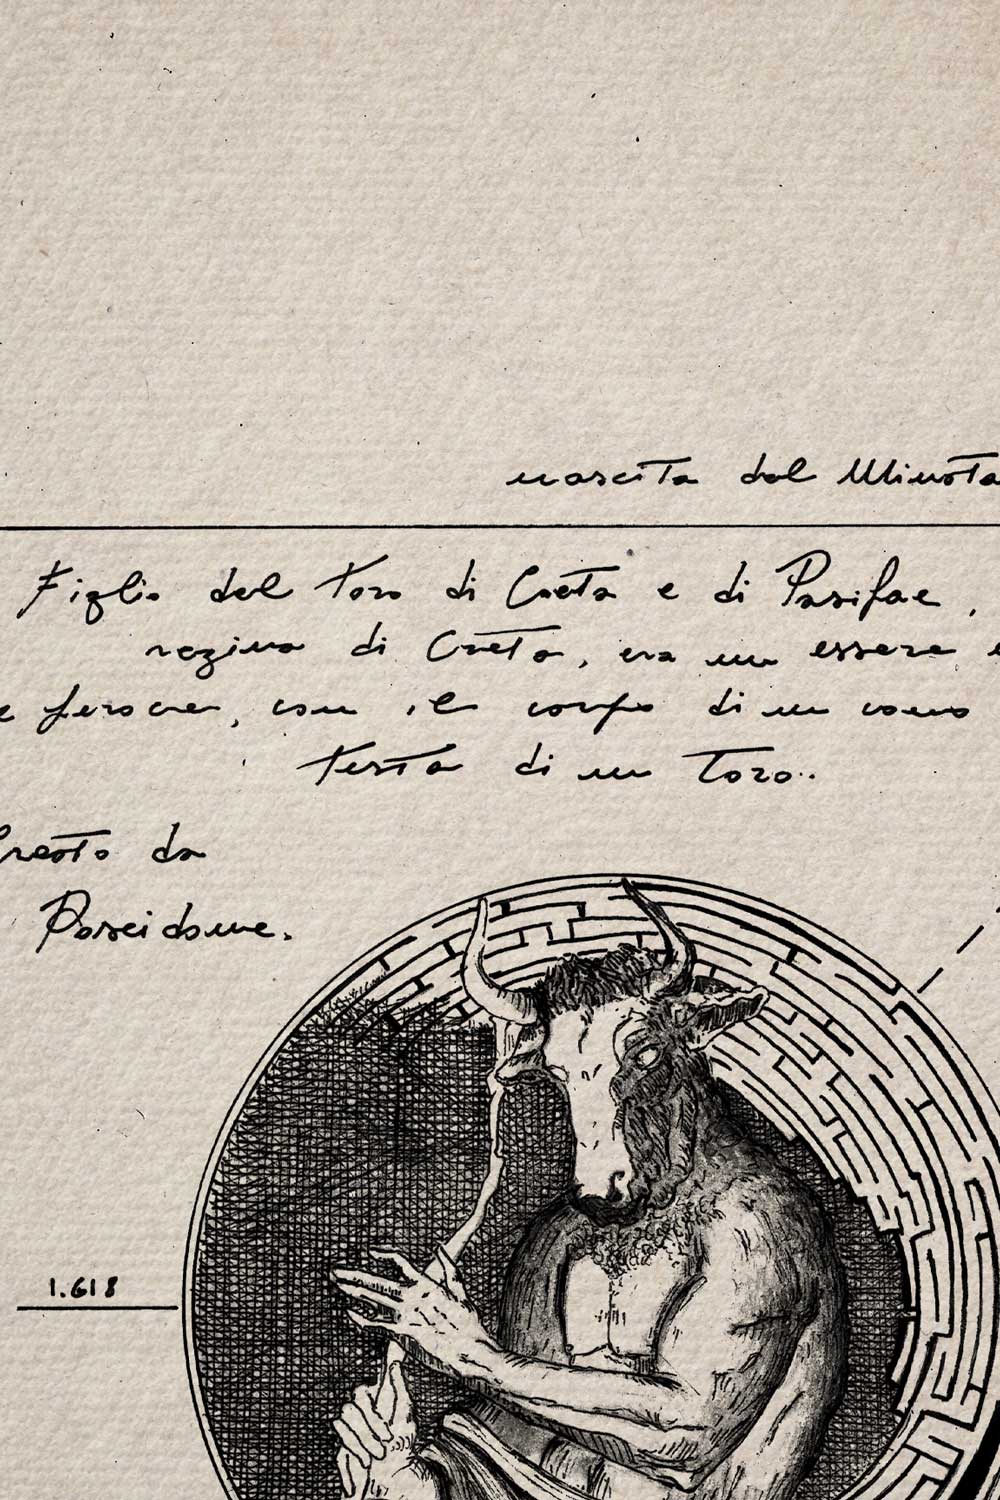 nascita dal Minota
Figlio del Toro di Creta e di Pasifae,
regina di Creta, era un essere
e feroce, con il corpo di un uomo
testa di un Toro..
Creato da
Poseidone.
1.618